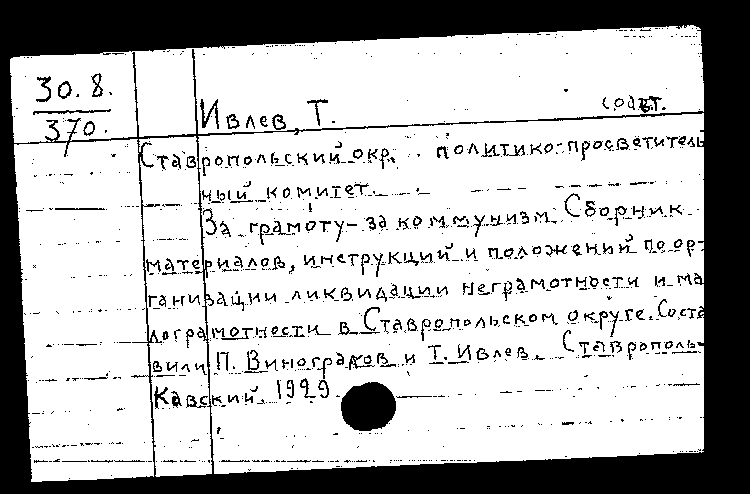 30.8.
370.
Ивлев, Т. соавт.
Ставропольский окр. политико-просветитель
ный комитет.
За грамоту - за коммунизм. Сборник
материалов, инструкций и положений по ор-
ганизации ликвидации неграмотности и ма
лограмотности в Ставропольском округе. Соста
вили П. Виноградов и Т. Ивлев. Ставрополь-
Кавский. 1929.